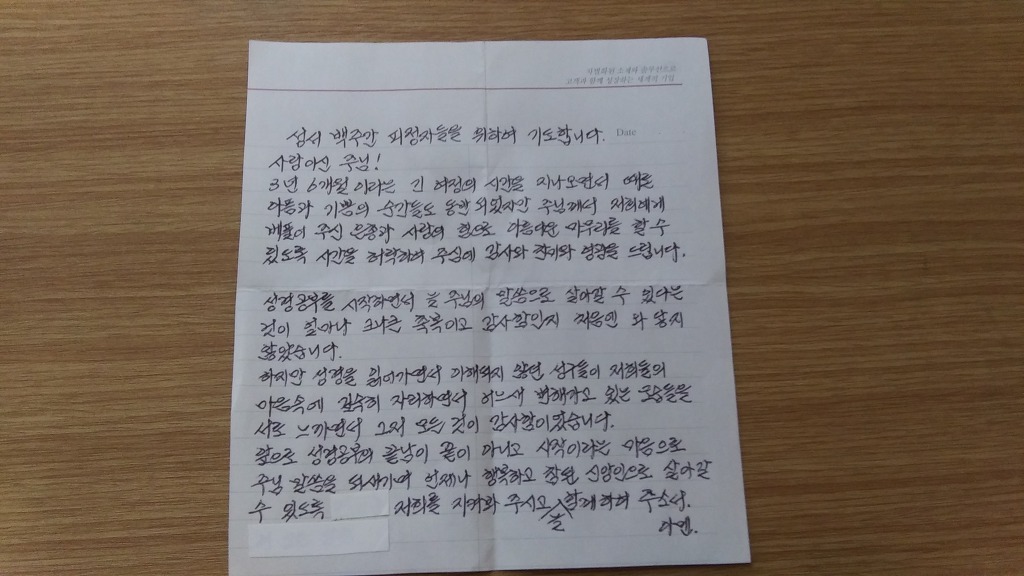 차별화된 소재와 솔루션으로
고객과 함께 성장하는 세계적 기업
Date
성서 백주간 피정자들을 위하여 기도합니다.
사랑이신 주님!
3년 6개월 이라는 긴 여정의 시간을 지나오면서 때로
아픔과 기쁨의 순간들도 동반 되었지만 주님께서 저희에게
베풀어 주신 은총과 사랑의 힘으로 아름다운 마무리를 할 수
있도록 시간을 허락하여 주심에 감사와 찬미와 영광을 드립니다.
성경공부를 시작하면서 늘 주님의 말씀으로 살아갈 수 있다는
것이 얼마나 크나큰 축복이고 감사함인지 처음엔 와 닿지
않았습니다.
하지만 성경을 읽어가면서 이해되지 않던 성구들이 저희들의
마음속에 깊숙히 자리하면서 어느새 변해가고 있는 모습들을
서로 느끼면서 그저 모든 것이 감사함이었습니다.
앞으로 성경공부의 끝남이 끝이 아니고 시작이라는 마음으로
주님 말씀을 되새기며 언제나 행복하고 참된 신앙인으로 살아갈
수 있도록 저희를 지켜와 주시고 늘 함께 하여 주소서.
아멘.